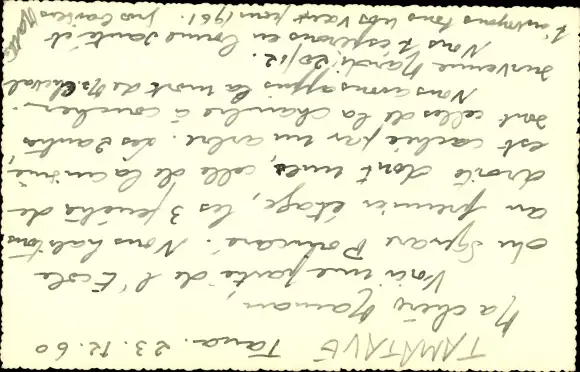 TAMATAVE Tana. 23.12.60
Ma chère Maman,
Voici une partie de l'Ecole
du Square Poincaré. Nous habitons
au premier étage, les 3 fenêtres de
droite dont une, celle de la cuisine,
est cachée par un arbre. Les 2 autres
sont celles de la chambre à coucher.
Nous avons appris la mort de Mr
survenue Mardi 20/12.
Nous t'espérons en bonne santé et
t'envoyons tous nos vœux pour 1961. Gros baisers